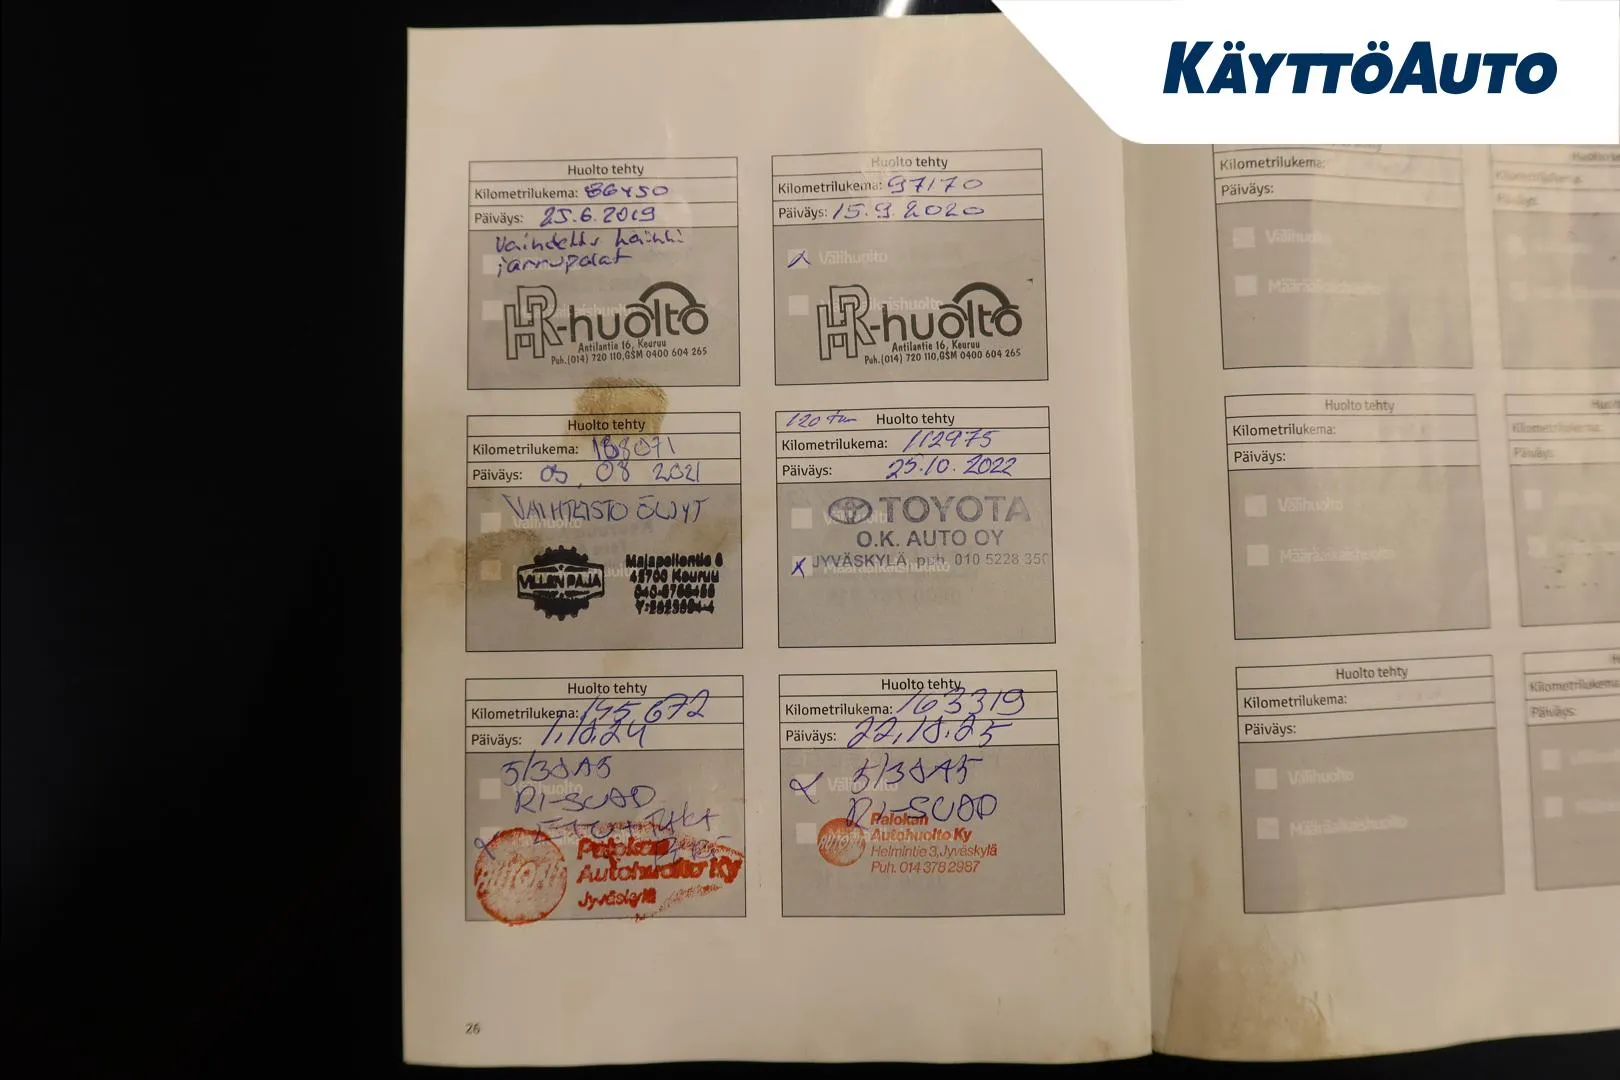 KÄYTTÖAUTO
Huolto tehty
Kilometrilukema: 86450
Päiväys: 25.6.2019
Vaihdettu kaikki
jarrupalat
HR-huolto
Antilantie 16, Keuruu
Puh.(014) 720 110,GSM 0400 604 265
Huolto tehty
Kilometrilukema: 97170
Päiväys: 15.9.2020
x Välihuolto
Määräaikaishuolto
HR-huolto
Antilantie 16, Keuruu
Puh.(014) 720 110,GSM 0400 604 265
Huolto tehty
Kilometrilukema:
Päiväys: 03.08 2021
VAIHTEISTO ÖLJYT
Välihuolto
VILLEN PAJA
42700 Keuruu
120 tkm Huolto tehty
Kilometrilukema: 112975
Päiväys: 25.10.2022
TOYOTA
O.K. AUTO OY
JYVÄSKYLÄ, puh. 010 5228 350
x Määräaikaishuolto
Huolto tehty
Kilometrilukema: 145,672
Päiväys: 1.10.24
5/30A5
x
Palokan
Autohuolto Ky
Jyväskylä
Huolto tehty
Kilometrilukema: 163319
Päiväys: 22.10.25
x Välihuolto 5/30A5
Palokan
Autohuolto Ky
Helmintie 3, Jyväskylä
Puh. 014 378 2987
26
Kilometrilukema:
Päiväys:
Välihuolto
Määräaikaishuolto
Huolto tehty
Kilometrilukema:
Päiväys:
Välihuolto
Määräaikaishuolto
Huolto tehty
Kilometrilukema:
Päiväys:
Välihuolto
Määräaikaishuolto
Kilometrilukema:
Päiväys:
Kilometrilukema:
Päiväys:
Kilometrilukema:
Päiväys: